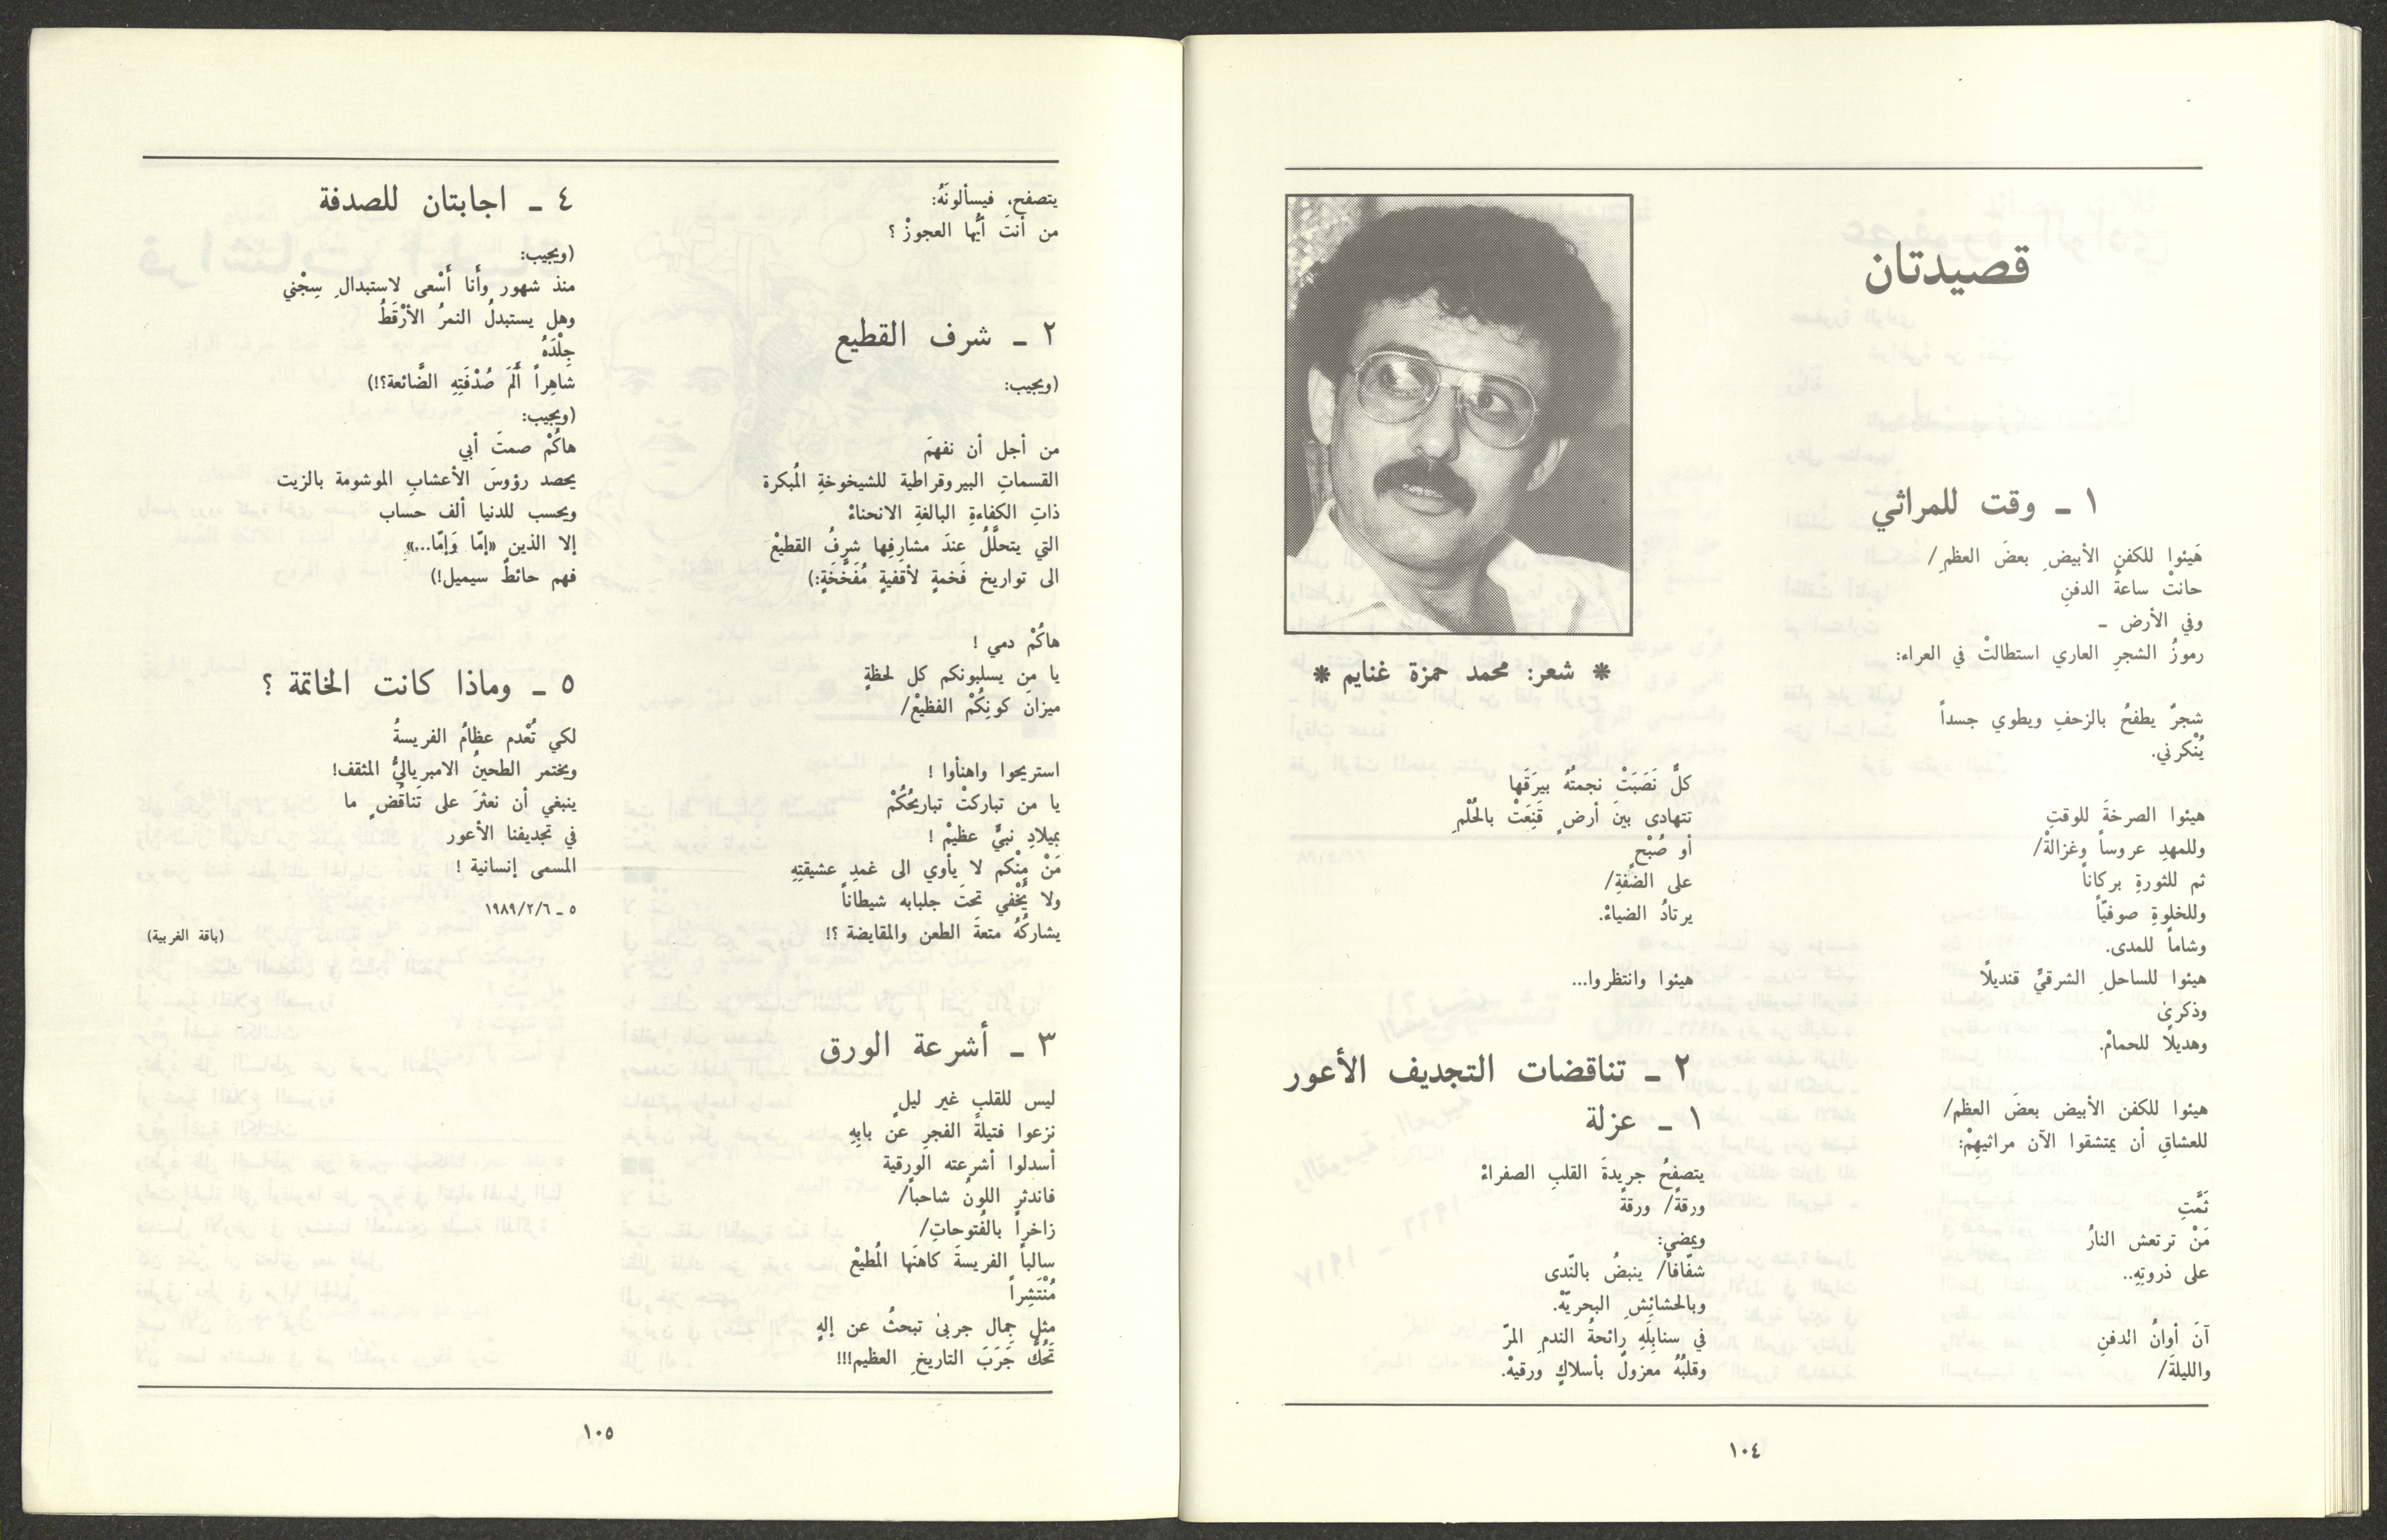 قصيدتان
* شعر: محمد حمزة غنايم *
١ ـ وقت للمراثي
هَيئوا للكفنِ الأبيضِ بعضَ العظمِ/
حانتْ ساعةُ الدفنِ
وفي الأرض ـ
رموزُ الشجرِ العاري استطالتْ في العراء:
شجرٌ يطفحُ بالزحفِ ويطوي جسداً
يُنْكرني.
هيئوا الصرخةَ للوقتِ
وللمهدِ عروساً وغزالةْ/
ثم للثورةِ بركاناً
وللخلوةِ صوفيّاً
وشاماً للمدى.
هيئوا للساحلِ الشرقيِّ قنديلًا
وذكرى
وهديلًا للحمامْ.
هيئوا للكفن الأبيض بعضَ العظم/
للعشاقِ أن يمتشقوا الآن مراثيهِمْ:
ثَمَّتِ
مَنْ ترتعش النارُ
على ذروتِهِ..
آنَ أوانُ الدفنِ
والليلةَ/
كلُّ نَصَبَتْ نجمتُهُ بيرَقَها
تتهادى بينَ أرضٍ قَنِعَتْ بالحُلْمِ
أو صُبْحٍ
على الضفةِ/
يرتادُ الضياءْ.
هيئوا وانتظروا...
٢ ـ تناقضات التجديف الأعور
١ ـ عزلة
يتصفحُ جريدةَ القلبِ الصفراءْ
ورقةً/ ورقةً
ويمضي:
شفّافاً/ ينبضُ بالنّدى
وبالحشائشِ البحريّهْ.
في سنابِلَهِ رائحةُ الندمِ المرّ
وقلبُهُ معزولٌ بأسلاكٍ ورقيهْ.
١٠٤
يتصفح، فيسألونَهُ:
من أنتَ أيُّها العجوزْ ؟
٢ ـ شرف القطيع
(ويجيب:
من أجل أن نفهمَ
القسماتِ البيروقراطية للشيخوخةِ المُبكرة
ذاتِ الكفاءةِ البالغةِ الانحناءْ
التي يتحلَّلُ عندَ مشارفِها شرفُ القطيعْ
الى تواريخ فَخمةٍ لأقفيةٍ مُفَخَّخَةٍ:)
هاكُمْ دمي !
يا من يسلبونكم كل لحظةٍ
ميزانَ كونِكُمْ الفظيعْ/
استريحوا واهنأوا !
يا من تباركتْ تباريحُكُمْ
بميلادِ نبيٍّ عظيمْ !
مَنْ مِنْكم لا يأوي الى غمدِ عشيقتِهِ
ولا يُخْفي تحتَ جلبابه شيطاناً
يشاركُهُ متعةَ الطعن والمقايضة ؟!
٣ ـ أشرعة الورق
ليس للقلبِ غير ليلٍ
نزعوا فتيلةَ الفجرِ عن بابِهِ
أسدلوا أشرعته الورقية
فاندثر اللونُ شاحباً/
زاخراً بالفُتوحاتِ/
سالباً الفريسةَ كاهنَها المُطيعْ
مُنْتَشِراً
مثل جِمال جربىٰ تبحثُ عن إلهٍ
تَحُكُّ جَرَبَ التاريخِ العظيم!!!
٤ ـ اجابتان للصدفة
(ويجيب:
منذ شهور وأَنا أَسْعى لاستبدالِ سِجْني
وهل يستبدلُ النمرُ الأَرْقَطُ
جِلْدَهُ
شاهِراً أَلَمَ صُدْفَتِهِ الضَّائعة؟!)
(ويجيب:
هاكُمْ صمتَ أبي
يحصد رؤوسَ الأعشابِ الموشومة بالزيت
ويحسب للدنيا ألف حساب
إلا الذين «إمّا وَإمّا...»ِ
فهم حائطٌ سيميل!)
٥ ـ وماذا كانت الخاتمة ؟
لكي تُعْدم عظامُ الفريسةُ
ويختمر الطحينُ الامبرياليُّ المثقف!
ينبغي أن نعثرَ على تَناقُضٍ ما
في تجديفنا الأعور
المسمى إنسانية !
٥ ـ ١٩٨٩/٢/٦
(باقة الغربية)
١٠٥